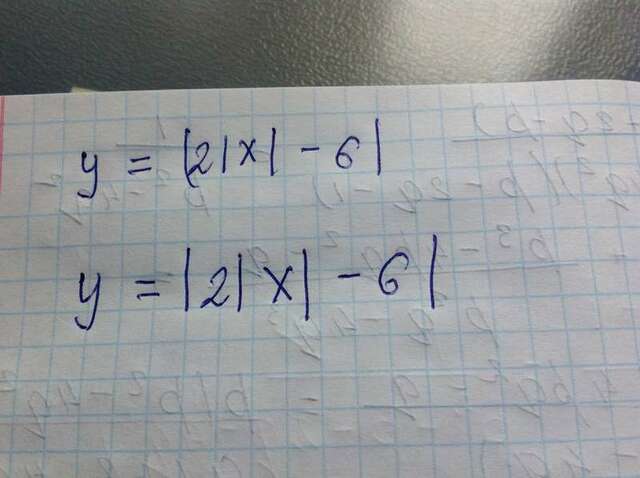 y = |2|x| - 6|
y = |2|x| - 6|